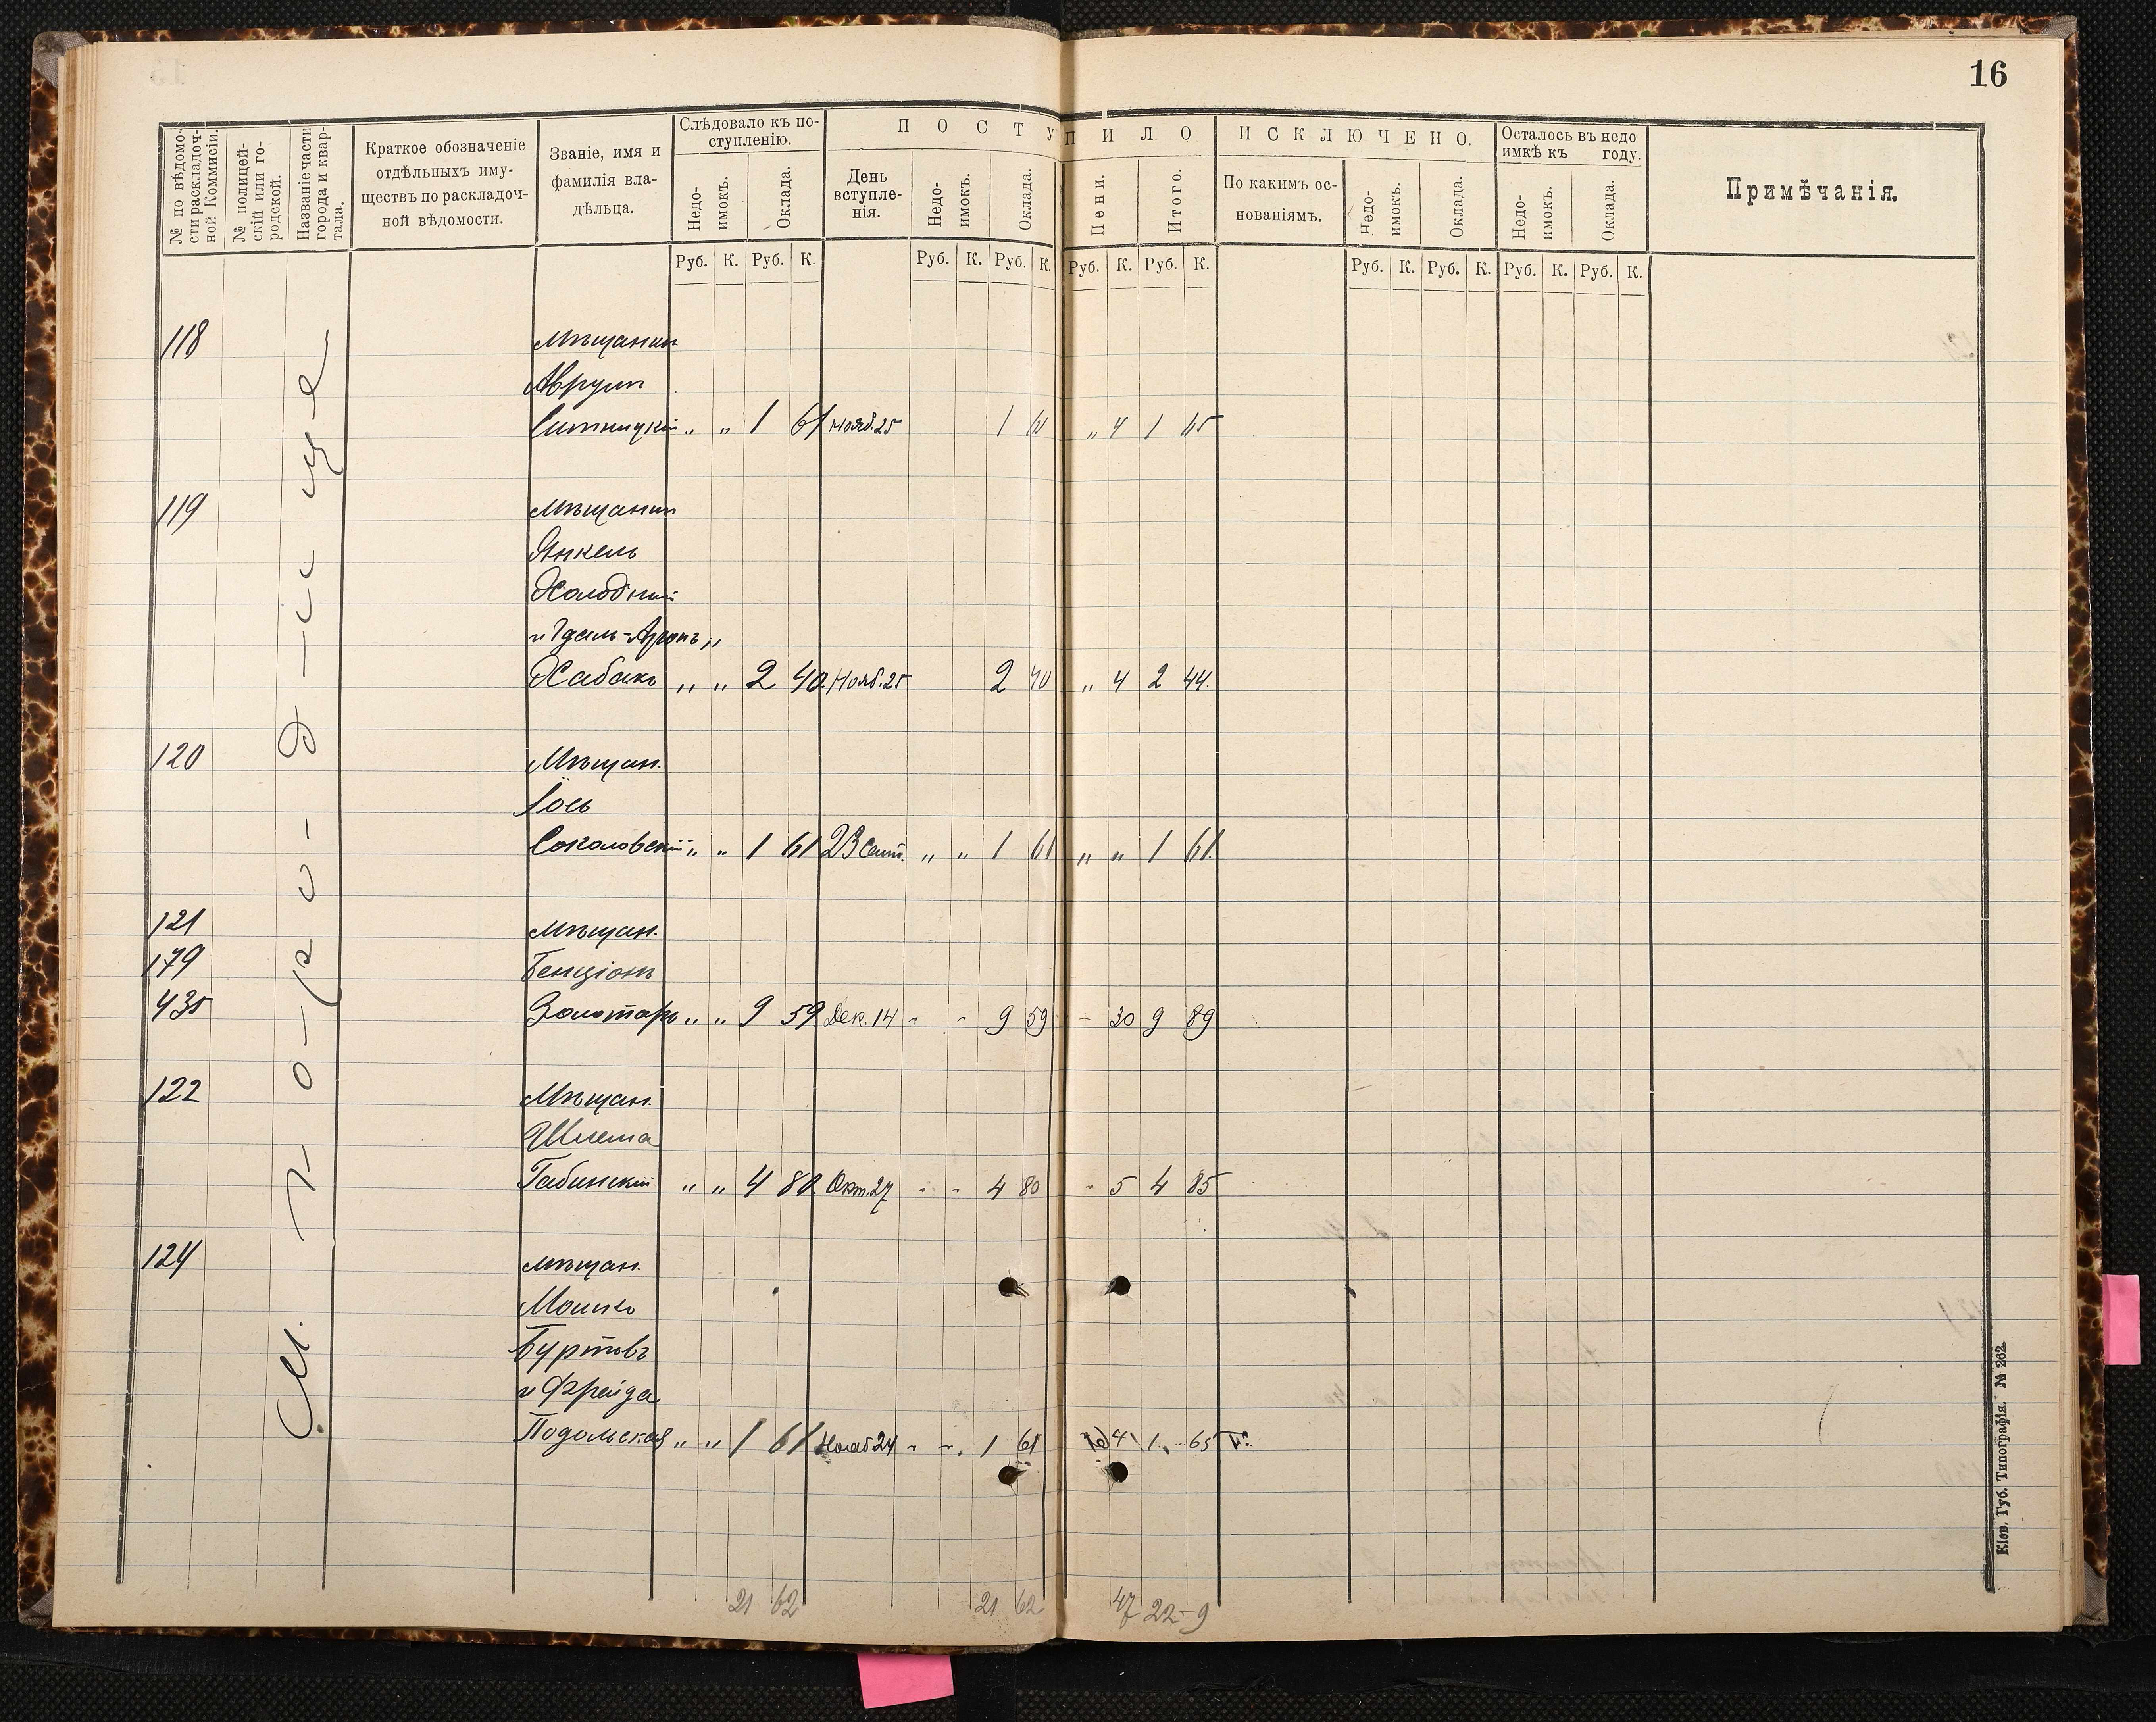 16
№ по вѣдомо-
сти раскладоч-
ной Коммисіи.
№ полицей-
скій или го-
родской.
Названіе части
города и квар-
тала.
Краткое обозначеніе
отдѣльныхъ иму-
ществъ по раскладоч-
ной вѣдомости.
Званіе, имя и
фамилія вла-
дѣльца.
Слѣдовало къ по-
ступленію.
Недо-
имокъ.
Оклада.
ПОСТУПИЛО
День
вступле-
нія.
Недо-
имокъ.
Оклада.
Пени.
Итого.
ИСКЛЮЧЕНО.
По какимъ ос-
нованіямъ.
Недо-
имокъ.
Оклада.
Осталось въ недо
имкѣ къ году.
Недо-
имокъ.
Оклада.
Примѣчанія.
Руб. К. Руб. К. Руб. К. Руб. К. Руб. К. Руб. К. Руб. К. Руб. К. Руб. К. Руб. К.
М. Город-ище
118 Мѣщанин
Аврум
Ситницкій „ „ 1 61 Нояб. 25 1 61 „ 4 1 65
119 Мѣщанин
Янкель
Холодный
и Идель-Аронъ „
Хабакъ „ „ 2 40 Нояб. 25 2 40 „ 4 2 44.
120 Мѣщан.
Іось
Соколовскій „ „ 1 61 23 Сент. „ „ 1 61 „ „ 1 61.
121 Мѣщан.
179 Бенціонъ
435 Золотарь „ „ 9 59 Дек. 14 - - 9 59 - 30 9 89
122 Мѣщан.
Шлема
Габинскій „ „ 4 80 Окт. 27 - - 4 80 - 5 4 85
124 Мѣщан.
Мошко
Буртовъ
и Фрейда
Подольская „ „ 1 61 Нояб 24 - - 1 61 4 1 65
21 62 21 62 47 22-9
Кіев. Губ. Типографія. № 262.